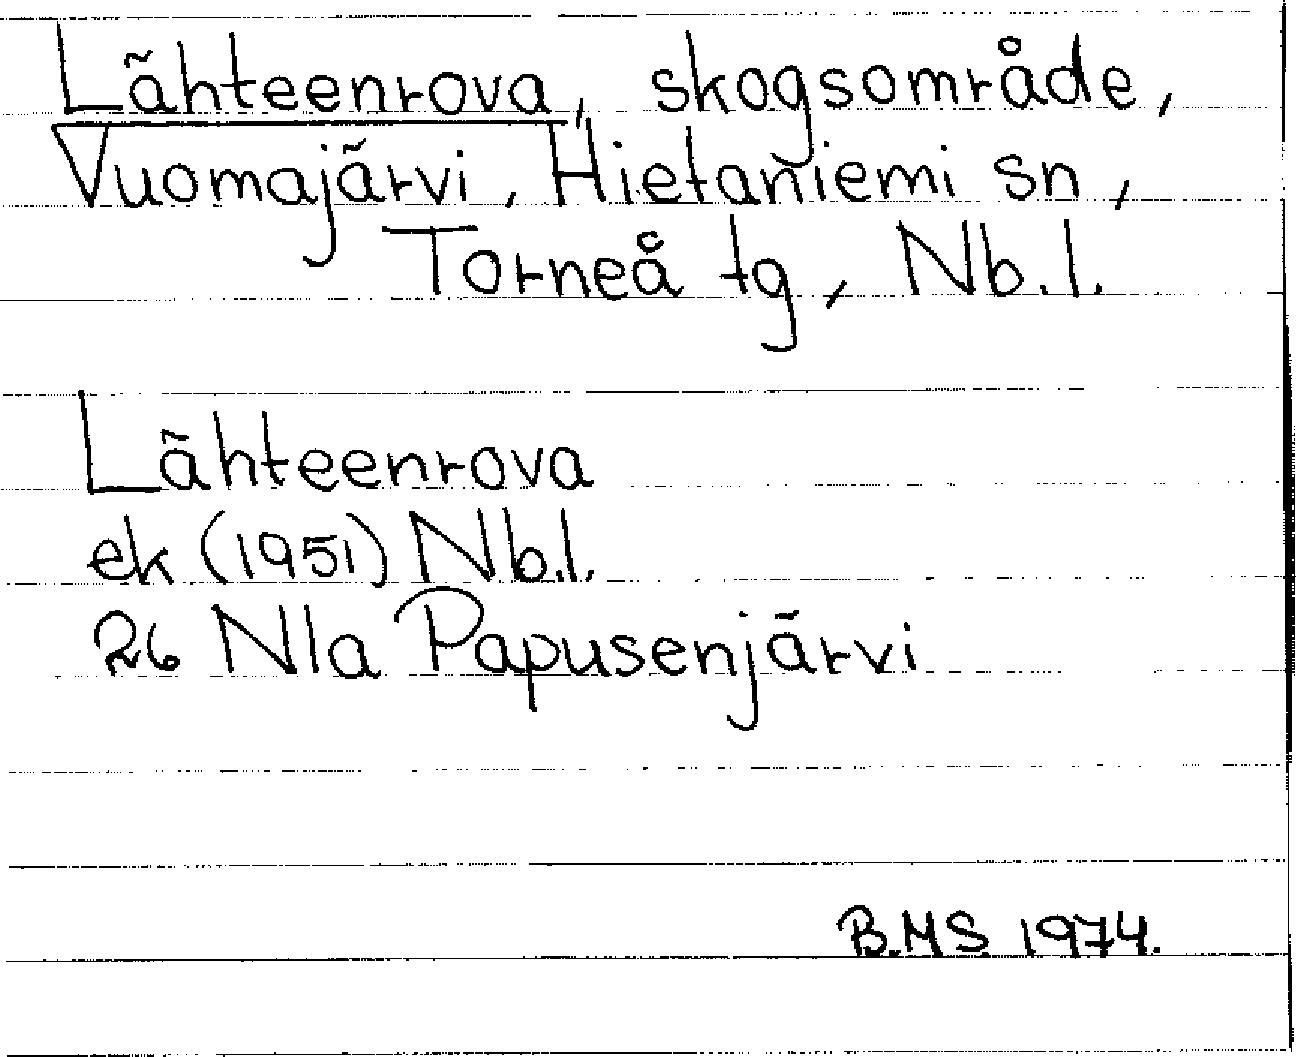 Lähteenrova, skogsområde,
Vuomajärvi, Hietaniemi sn,
Torneå tg, Nb.l.
Lähteenrova
ek (1951) Nb.l.
26 Nla Papusenjärvi
B.M.S. 1974.